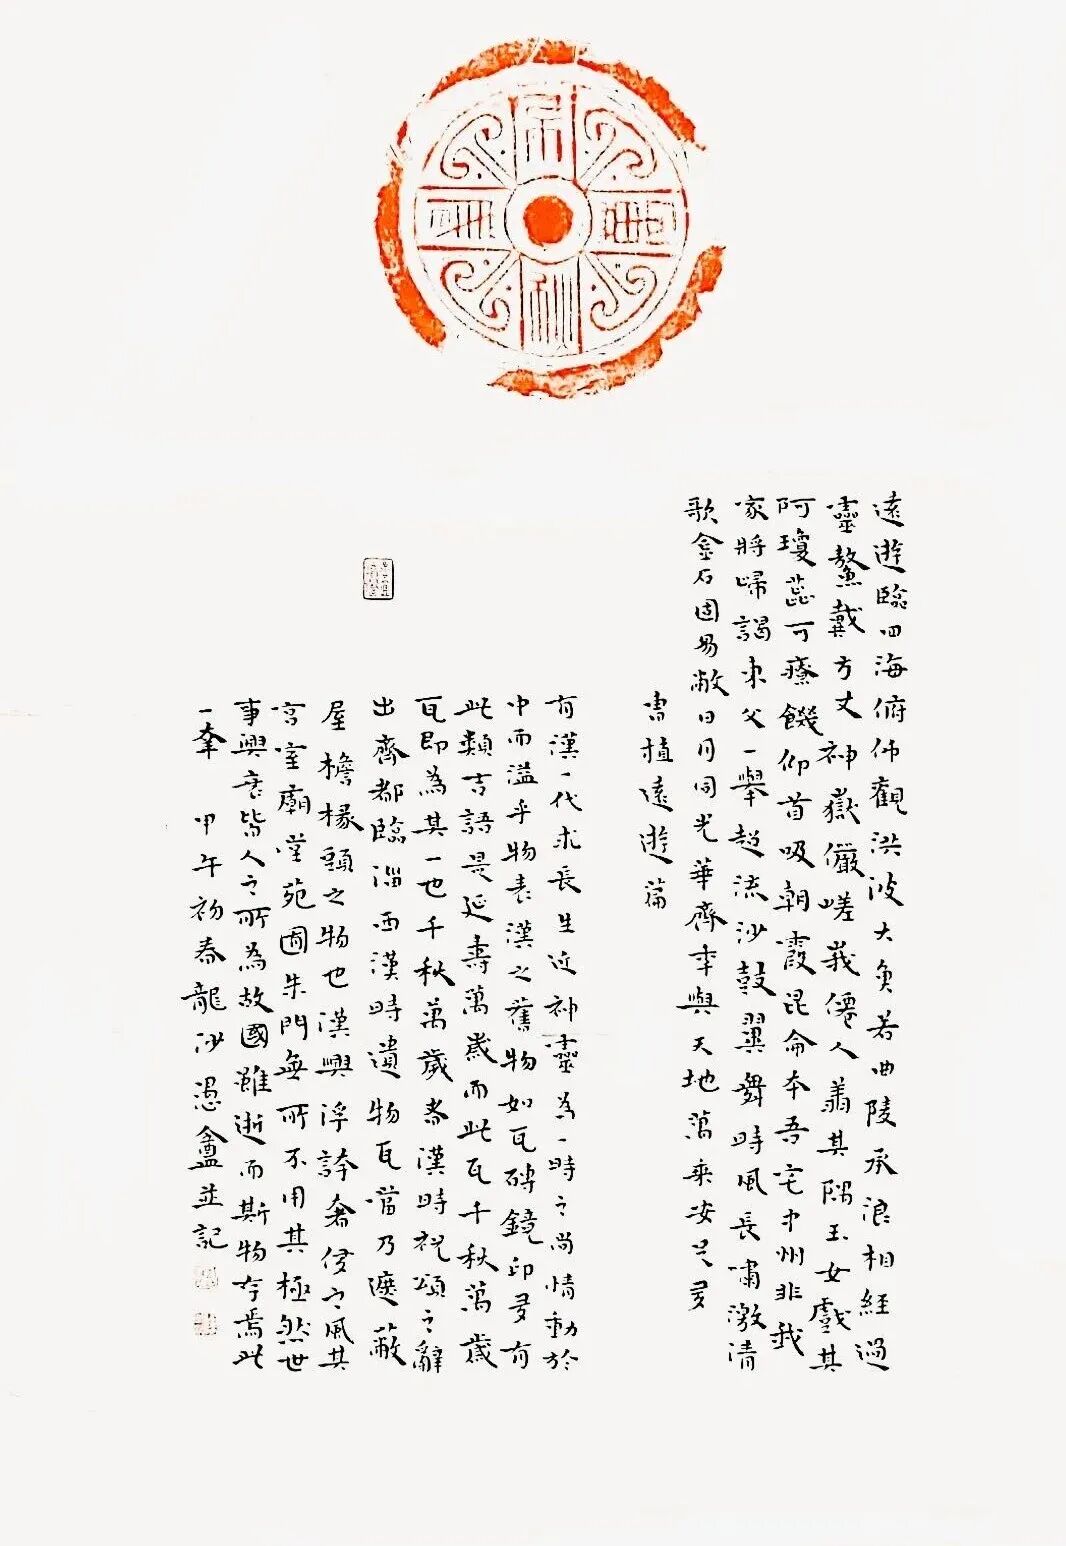 遠遊臨四海俯仰觀洪波大魚若曲陵承浪相經過
靈鼇戴方丈神嶽儼嵯峩僊人翔其隅玉女戲其
阿瓊蕊可療饑仰首吸朝霞昆侖本吾宅中州非我
家將歸謁東父一舉超流沙鼓翼舞時風長嘯激清
歌金石固易敝日月同光華齊年與天地萬乘安足多
書植遠遊篇
有漢一代求長生近神靈為一時之尚情動於
中而溢乎物表漢之舊物如瓦磚鏡印多有
此類吉語是延壽萬歲而此瓦千秋萬歲
瓦即為其一也千秋萬歲者漢時祝頌之辭
出齊都臨淄西漢時遺物瓦當乃遮蔽
屋檐椽頭之物也漢興浮誇奢侈之風其
宮室廟堂苑囿朱門無所不用其極然世
事興衰皆人之所為故國雖逝而斯物存焉此
一 甲午初春龍沙盦並記